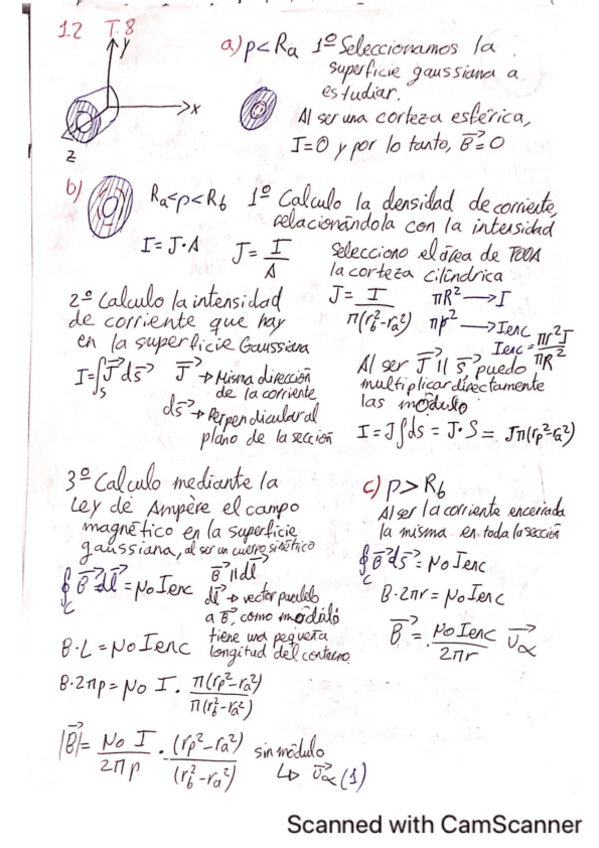 1.2 T.8
y
x
z
a) ρ<Ra 1º Seleccionamos la
superficie gaussiana a
estudiar.
Al ser una corteza esférica,
I=0 y por lo tanto, B⃗=0
b) Ra<ρ<Rb 1º Calculo la densidad de corriente,
relacionándola con la intensidad
I=J·A J= I/A
Selecciono el área de TODA
la corteza cilíndrica
J= I/π(rb²-ra²)
πR² → I
πρ² → Ienc
Ienc = πr²J/πR²
2º Calculo la intensidad
de corriente que hay
en la superficie Gaussiana
I=∫s J⃗ ds⃗ J⃗ → Misma dirección
de la corriente
ds⃗ → Perpendicular al
plano de la sección
Al ser J⃗ || s⃗, puedo
multiplicar directamente
las módulo
I = J∫ds = J·S = Jπ(rp²-ra²)
3º Calculo mediante la
Ley de Ampère el campo
magnético en la superficie
gaussiana, al ser un cuerpo simétrico
∮c B⃗ dl⃗ = μo Ienc B⃗ || dl⃗
dl⃗ → vector paralelo
a B⃗, como módulo
tiene una pequeña
longitud del contorno.
B·L = μo Ienc
B·2πρ = μo I · π(rp²-ra²)/π(rb²-ra²)
|B⃗| = μo I/2πρ · (rp²-ra²)/(rb²-ra²) sin módulo
↳ u⃗α (1)
c) ρ>Rb
Al ser la corriente encerrada
la misma en toda la sección
∮c B⃗ ds⃗ = μo Ienc
B·2πr = μo Ienc
B⃗ = μo Ienc/2πr u⃗α
Scanned with CamScanner